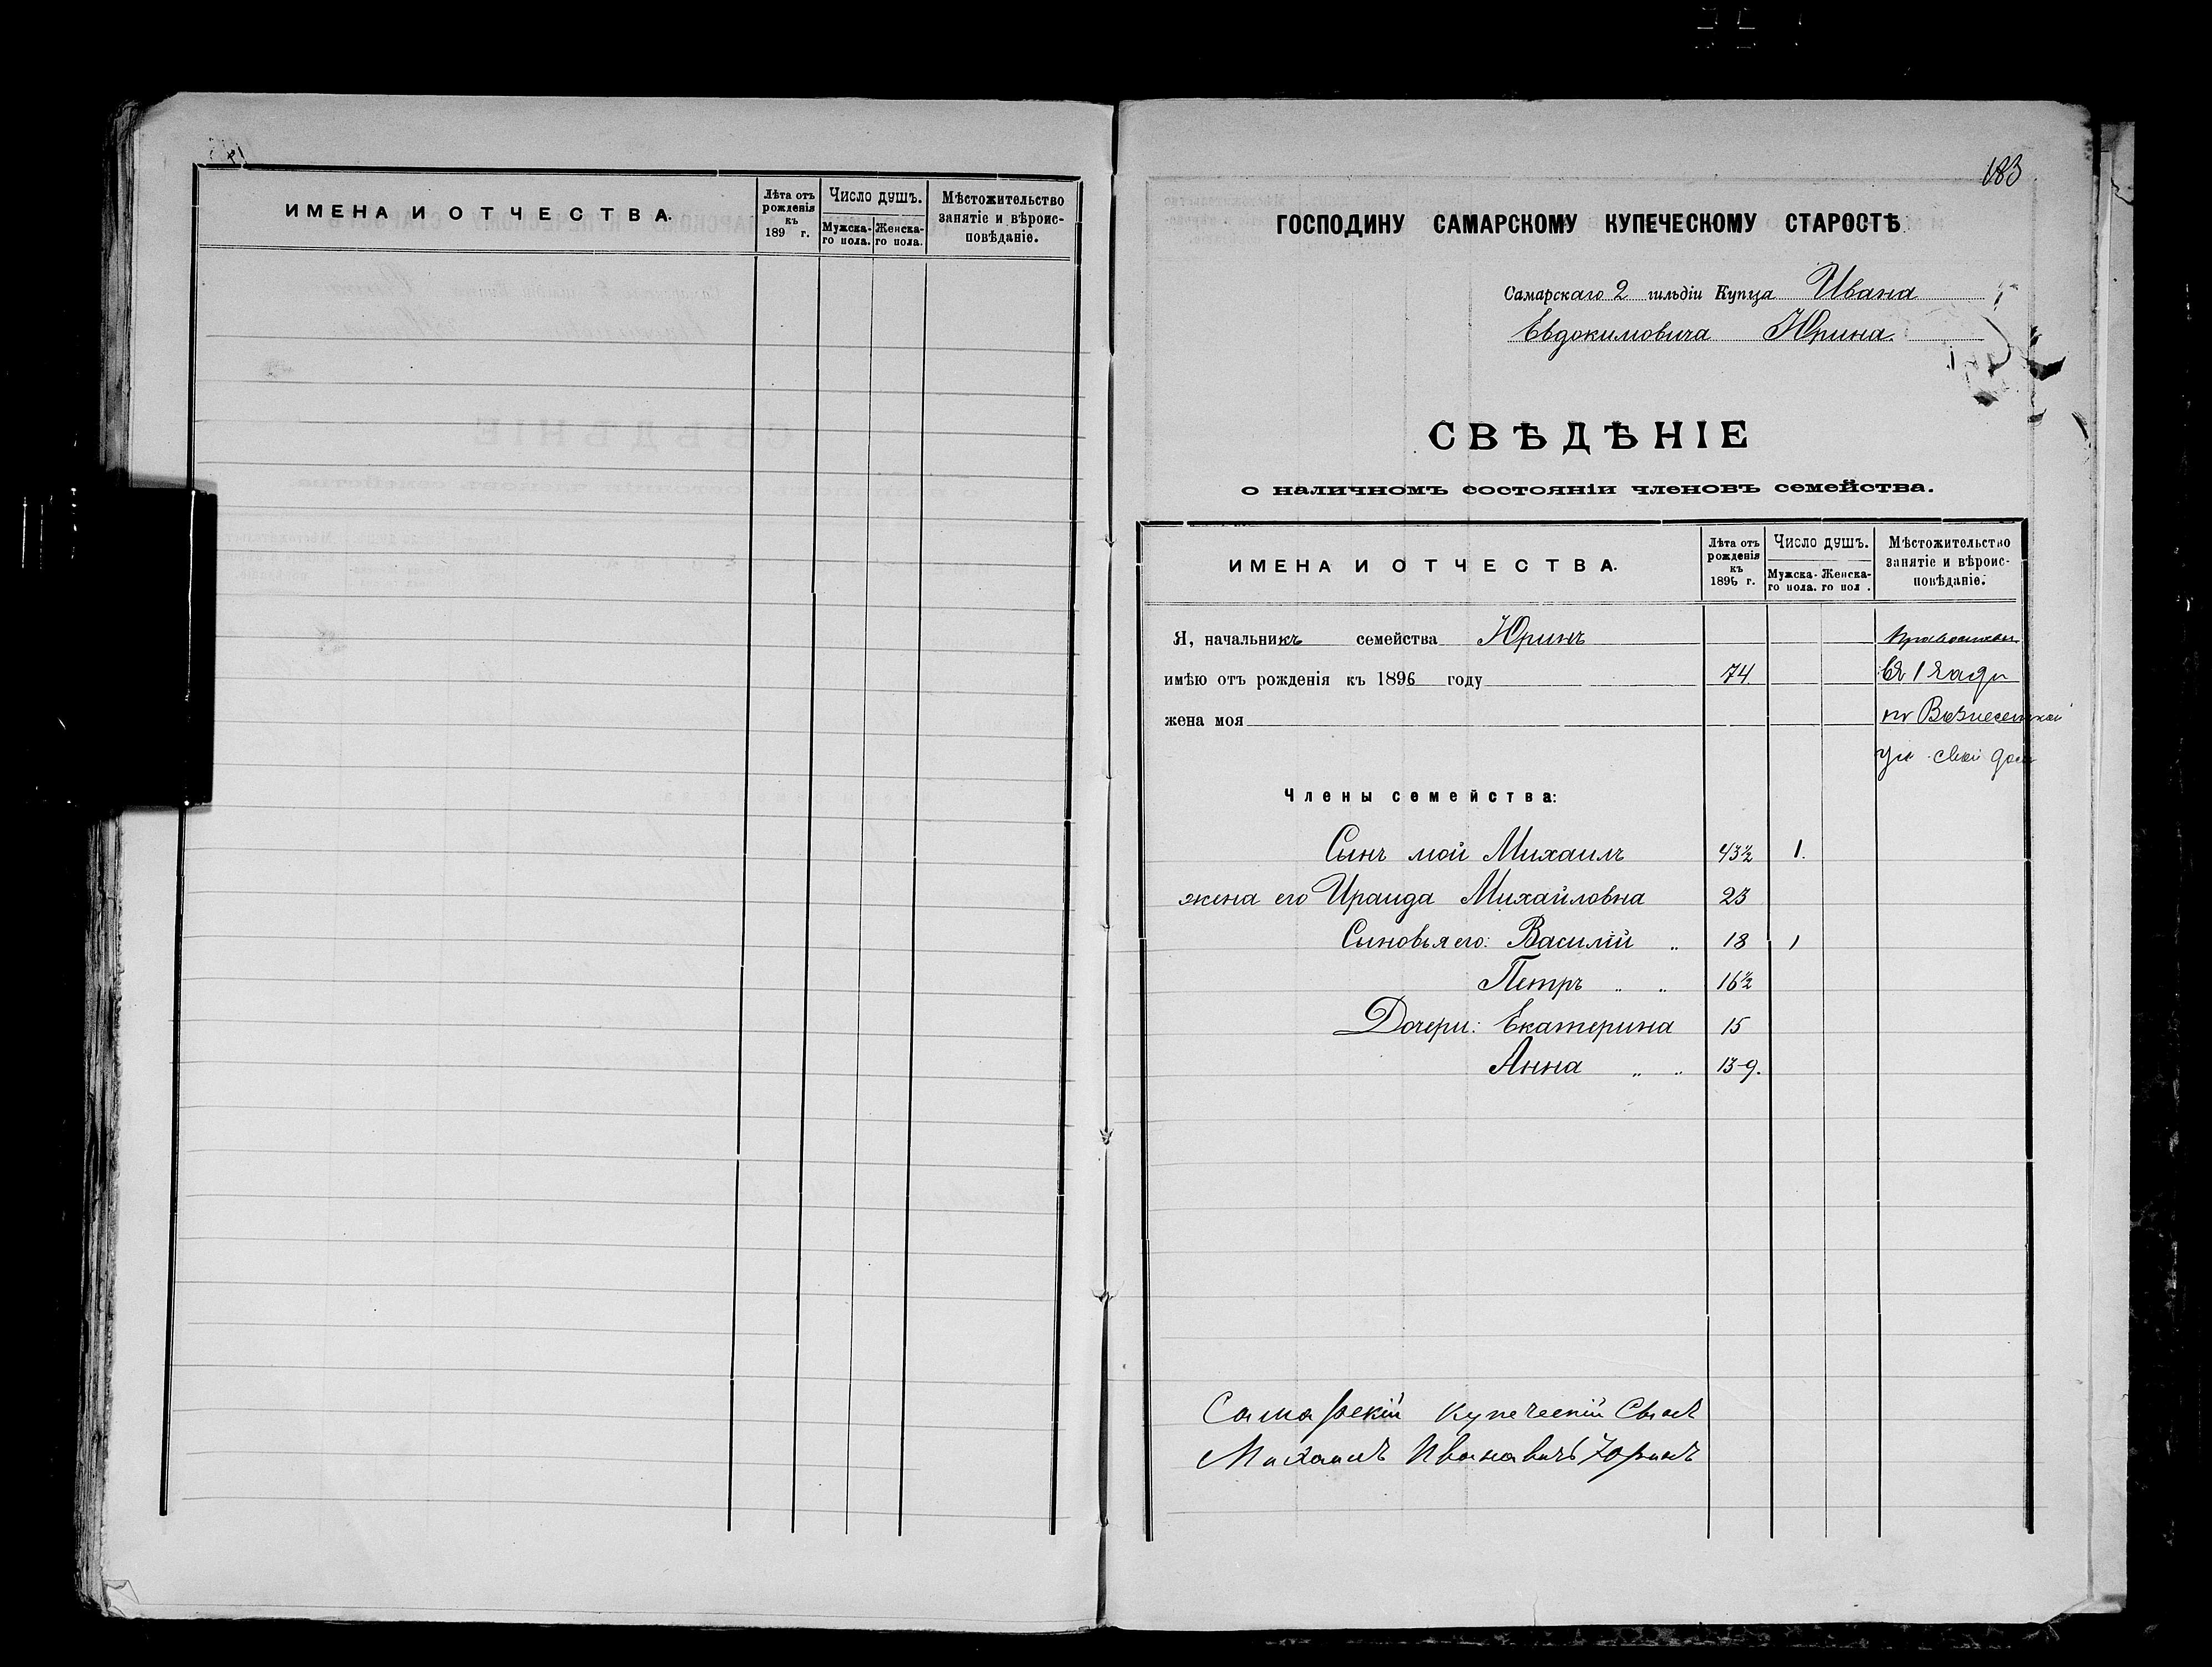 ИМЕНА И ОТЧЕСТВА.
Лѣта отъ рожденія къ 189 г.
Число душъ.
Мужска-го пола.
Женска-го пола.
Мѣстожительство занятіе и вѣроис-повѣданіе.
183
ГОСПОДИНУ САМАРСКОМУ КУПЕЧЕСКОМУ СТАРОСТѢ
Самарскаго 2 гильдіи Купца Ивана
Евдокимовича Юрина.
СВѢДѢНІЕ
о наличномъ состояніи членовъ семейства.
ИМЕНА И ОТЧЕСТВА.
Лѣта отъ рожденія къ 1896 г.
Число душъ.
Мужска-го пола.
Женска-го пол .
Мѣстожительство занятіе и вѣроис-повѣданіе.
Я, начальникъ семейства Юринъ
имѣю отъ рожденія къ 1896 году 74 1 
жена моя по Вознесенской
ул свой домъ
Члены семейства:
Сынъ мой Михаилъ 43½ 1.
жена его Ираида Михайловна 23
Сыновья его: Василій " 18 1
Петръ " " 16½
Дочери: Екатерина 15
Анна " " 13-9.
Самарскій Купеческій Сынъ
Михаилъ Ивановичъ Юринъ